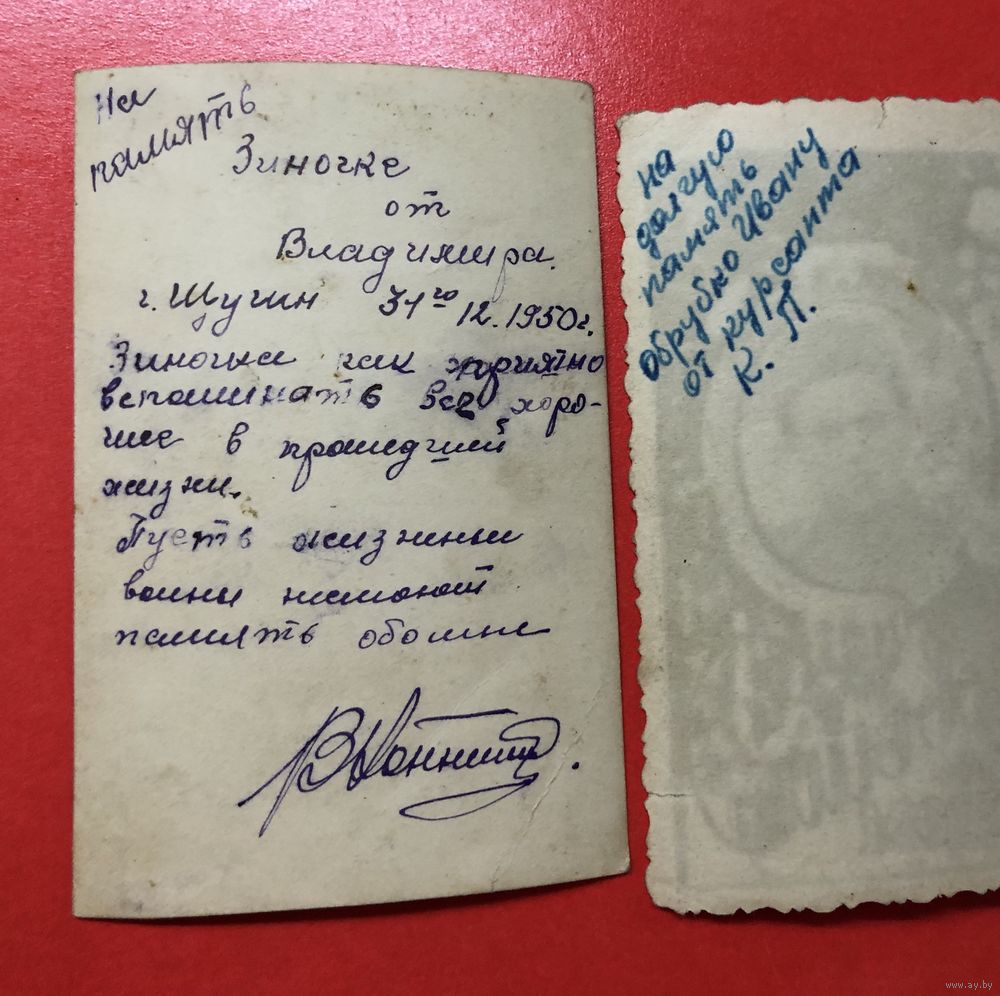 На
память
Зиночке
от
Владимира.
г. Щучин 31го 12.1950г.
Зиночка как приятно
вспоминать все хоро-
шие в прошедшей
жизни.
Пусть жизнены
волны
память обомне
на
долгую
память
Обрубко Ивану
от курсанта
К. П.
www.ay.by